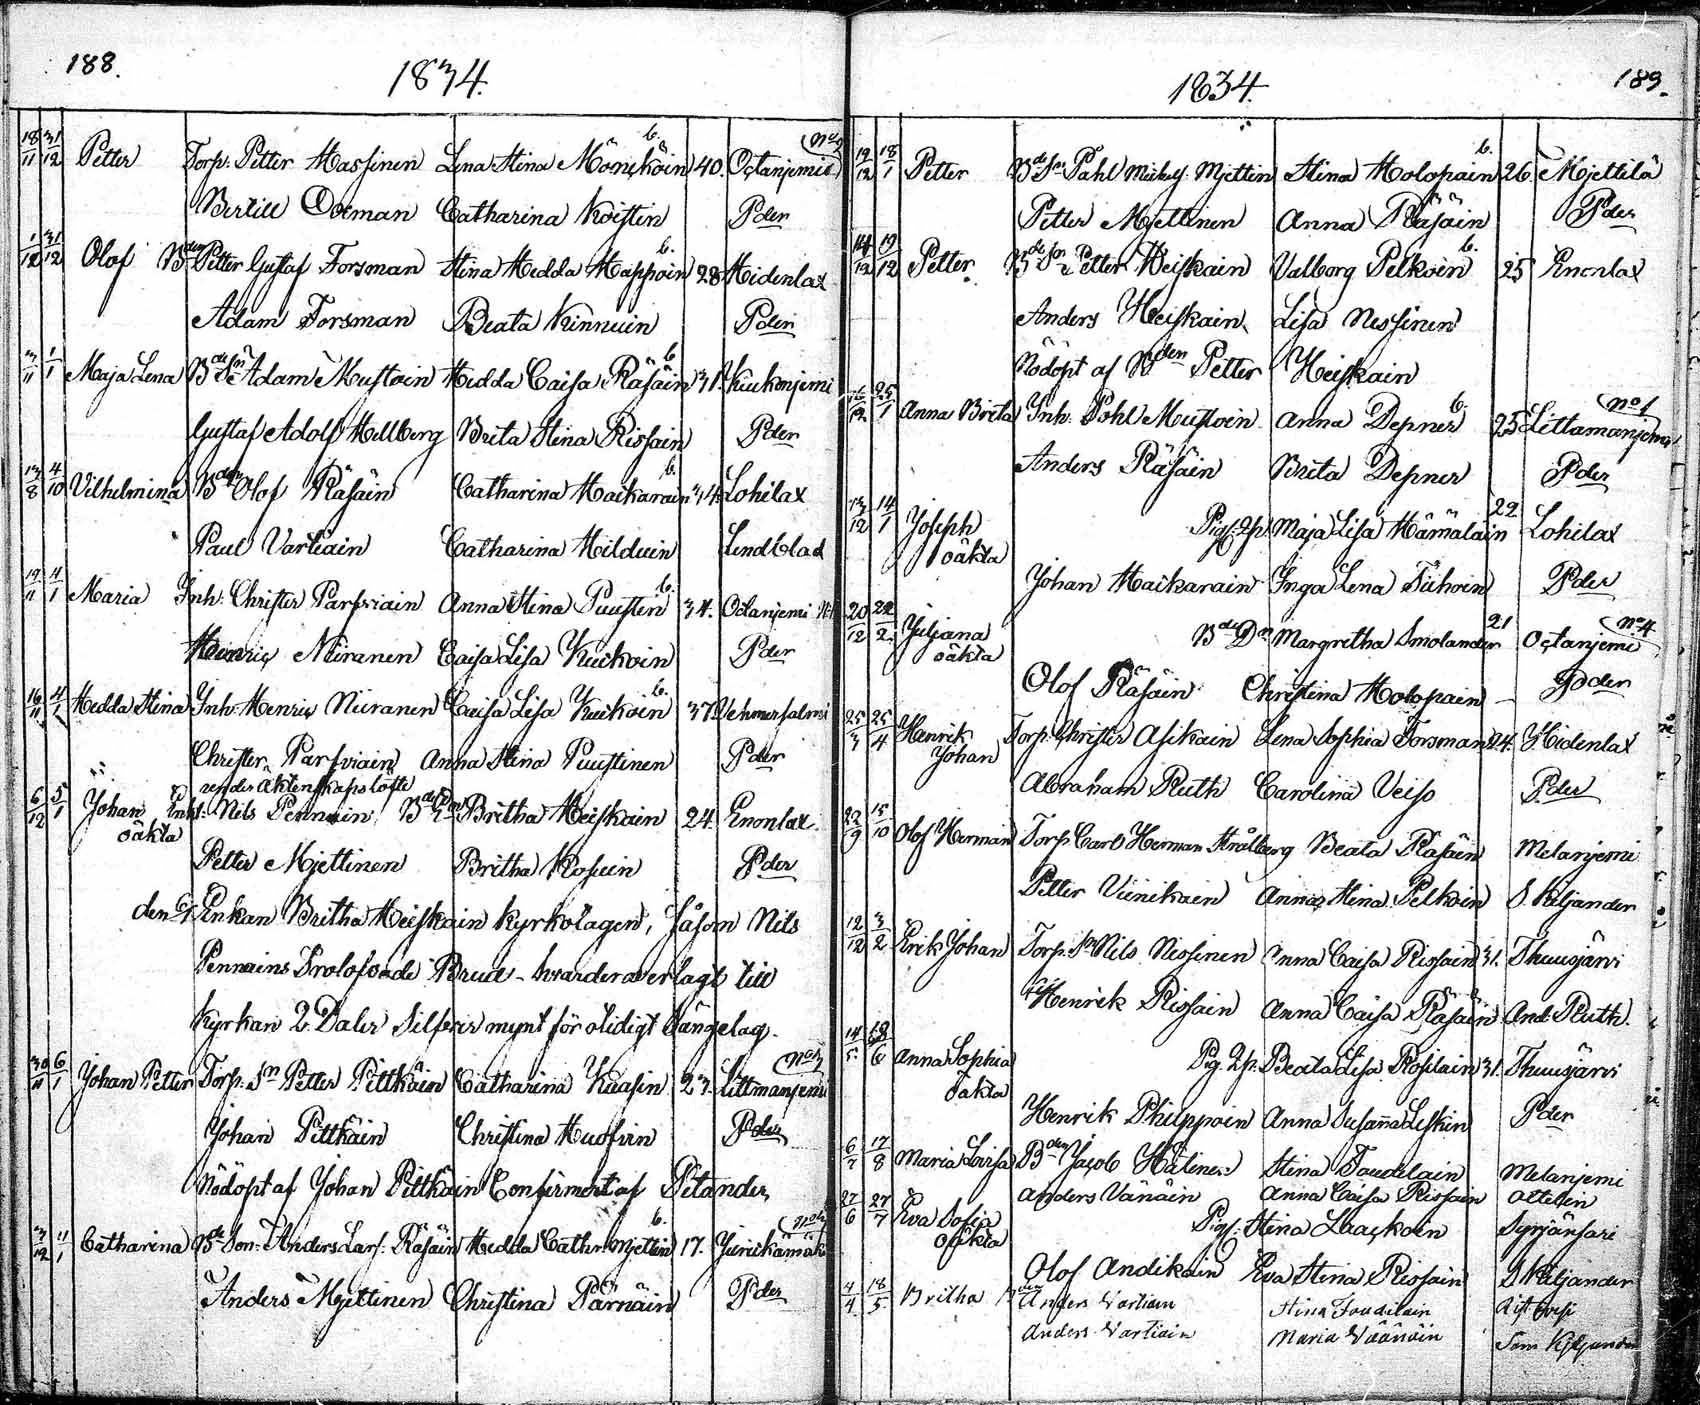 188.
1834.
18/11 31/12 Petter Torp: Petter Hassinen Lena Stina Möncköin b. 40. Octanjemi No
Bertill Doeman Catharina Koistin Pder
1/12 31/12 Olof Bden Petter Gustaf Forsman Stina Hedda Happoin b. 28. Hidenlax
Adam Forsman Beata Kinnuin Pder
3/11 1/1 Maja Lena Bde Sn Adam Mustoin Hedda Caisa Räsäin b. 31. Kiukonjemi
Gustaf Adolf Hellberg Brita Stina Rissain Pder
13/8 4/10 Vilhelmina Bden Olof Räsäin Catharina Hackarain b. 34. Lohilax
Paul Vartiain Catharina Hilduin Lindblad
19/11 4/1 Maria Inh: Christer Parfviain Anna Stina Puustin b. 34. Octanjemi
Henric Niiranen Caisa Lisa Kuikoin Pder
16/11 4/1 Hedda Stina Inh: Henric Niiranen Caisa Lisa Kuikoin b. 37. Vehmersalmi
Christer Parfviain Anna Stina Puustinen Pder
under äktenskapslöfte
6/12 5/1 Johan oäkta Inh: Nils Pennain Bde Britha Heiskain 24. Enonlax
Petter Mjettinen Britha Rosuin Pder
den 6/1 Enkan Britha Heiskain kyrkotagen, såsom Nils
Pennains Trolofvade Brud - hvarderaverlagt till
Kyrkan 2 Daler Silfver mynt för otidigt Sängelag.
30/11 6/1 Johan Petter Torp: Sn Petter Pittkäin Catharina Kuasin 23. Littmanjemi No 3
Johan Pittkäin Christina Huofvin Pder
Nödöpt af Johan Pittkäin Confirmert af Petander
3/12 11/1 Catharina Bde Son Anders Lars: Räsäin Hedda Cathr: Mjettin b. 17. Juurickämäki No
Anders Mjettinen Christina Pärnäin Pder
189.
1834.
19/12 18/1 Petter Bde Sn Pahl Mjettin Stina Holopain b. 26. Mjettilä
Petter Mjettinen Anna Räsäin Pder
14/12 19/12 Petter Bde Sn Petter Heiskain Valborg Pelkoin b. 25 Enonlax
Anders Heiskain Lisa Nessinen
Nödöpt af Bden Petter Heiskain
16/12 25/1 Anna Brita Inh: Pohl Mustoin Anna Depner b. 25 Littamanjemi No 1
Anders Räsäin Brita Depner Pder
13/12 14/1 Joseph oäkta Pig: Maja Lisa Hämäläin 22 Lohilax
Johan Hackarain Inga Lena Tiihoin Pder
20/12 22/2 Juljana oäkta Bde Dr Margretha Smolander 21 Octanjemi No 4
Olof Räsäin Christina Holopain Pder
25/3 25/4 Henrik Johan Torp: Christer Asikain Lena Sophia Forsman 24. Hidenlax
Abraham Ruth Carolina Veiso Pder
22/9 15/10 Olof Herman Torp: Carl Herman Strålberg Beata Räsäin Melanjemi
Petter Viinikain Anna Stina Pelkoin S. Kiljander
12/12 3/2 Erik Johan Torp: Sn Nils Nissinen Anna Caisa Rissain 31. Thuusjärvi
Henrik Rissain Anna Caisa Räsäin And: Ruth.
14/5 18/6 Anna Sophia oäkta Pig. Beata Lisa Rossilain 31. Thuusjärvi
Henrik Philippoin Anna Susanna Leskin Pder
6/7 17/8 Maria Lovisa Bden Jacob Hälinen Stina Taudilain Melanjemi
Anders Vänäin Anna Caisa Rissain Ottelin
27/6 27/7 Eva Sofia oäkta Pig: Stina Laackoin Syrjänsari
Olof Andikain Eva Stina Rissain S Kiljander
4/4 18/5 Britha Anders Vartiain Stina Taudilain
Anders Vartiain Maria Väänäin Sam Kiljander